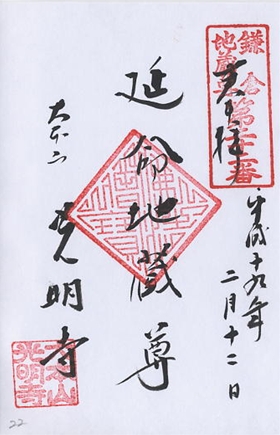 鎌倉
地蔵尊
第廿二番
奉拝
平成十九年
二月十二日
延命地蔵尊
大本山
光明寺
大本山
光明寺
22